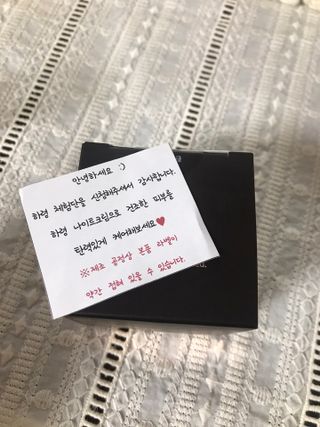 안녕하세요 :)
하령 체험단을 신청해주셔서 감사합니다.
하령 나이트크림으로 건조한 피부를
탄력있게 케어해보세요♥
※제조 공정상 본품 라벨이
약간 접혀 있을 수 있습니다.